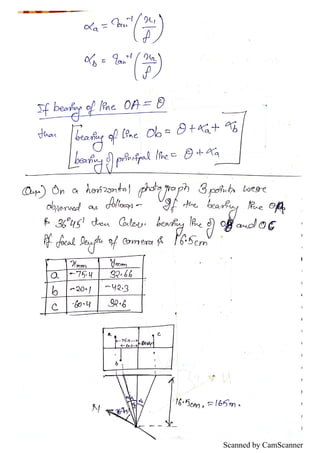 αa = Tan⁻¹ (x₁/f)
αb = Tan⁻¹ (x₂/f)
If bearing of line OA = θ
then bearing of line Ob = θ + αa + αb
bearing of principal line = θ + αa
Ques) On a horizontal photograph 3 points were
observed as follows - If the bearing line OA
is 36°45' then bearing line of OB and OC
If focal length of camera is 16.5cm
xmm ymm
a -75.4 32.66
b -20.1 -42.3
c 60.4 32.6
a c
b
N
16.5cm. = 165m.
Scanned by CamScanner